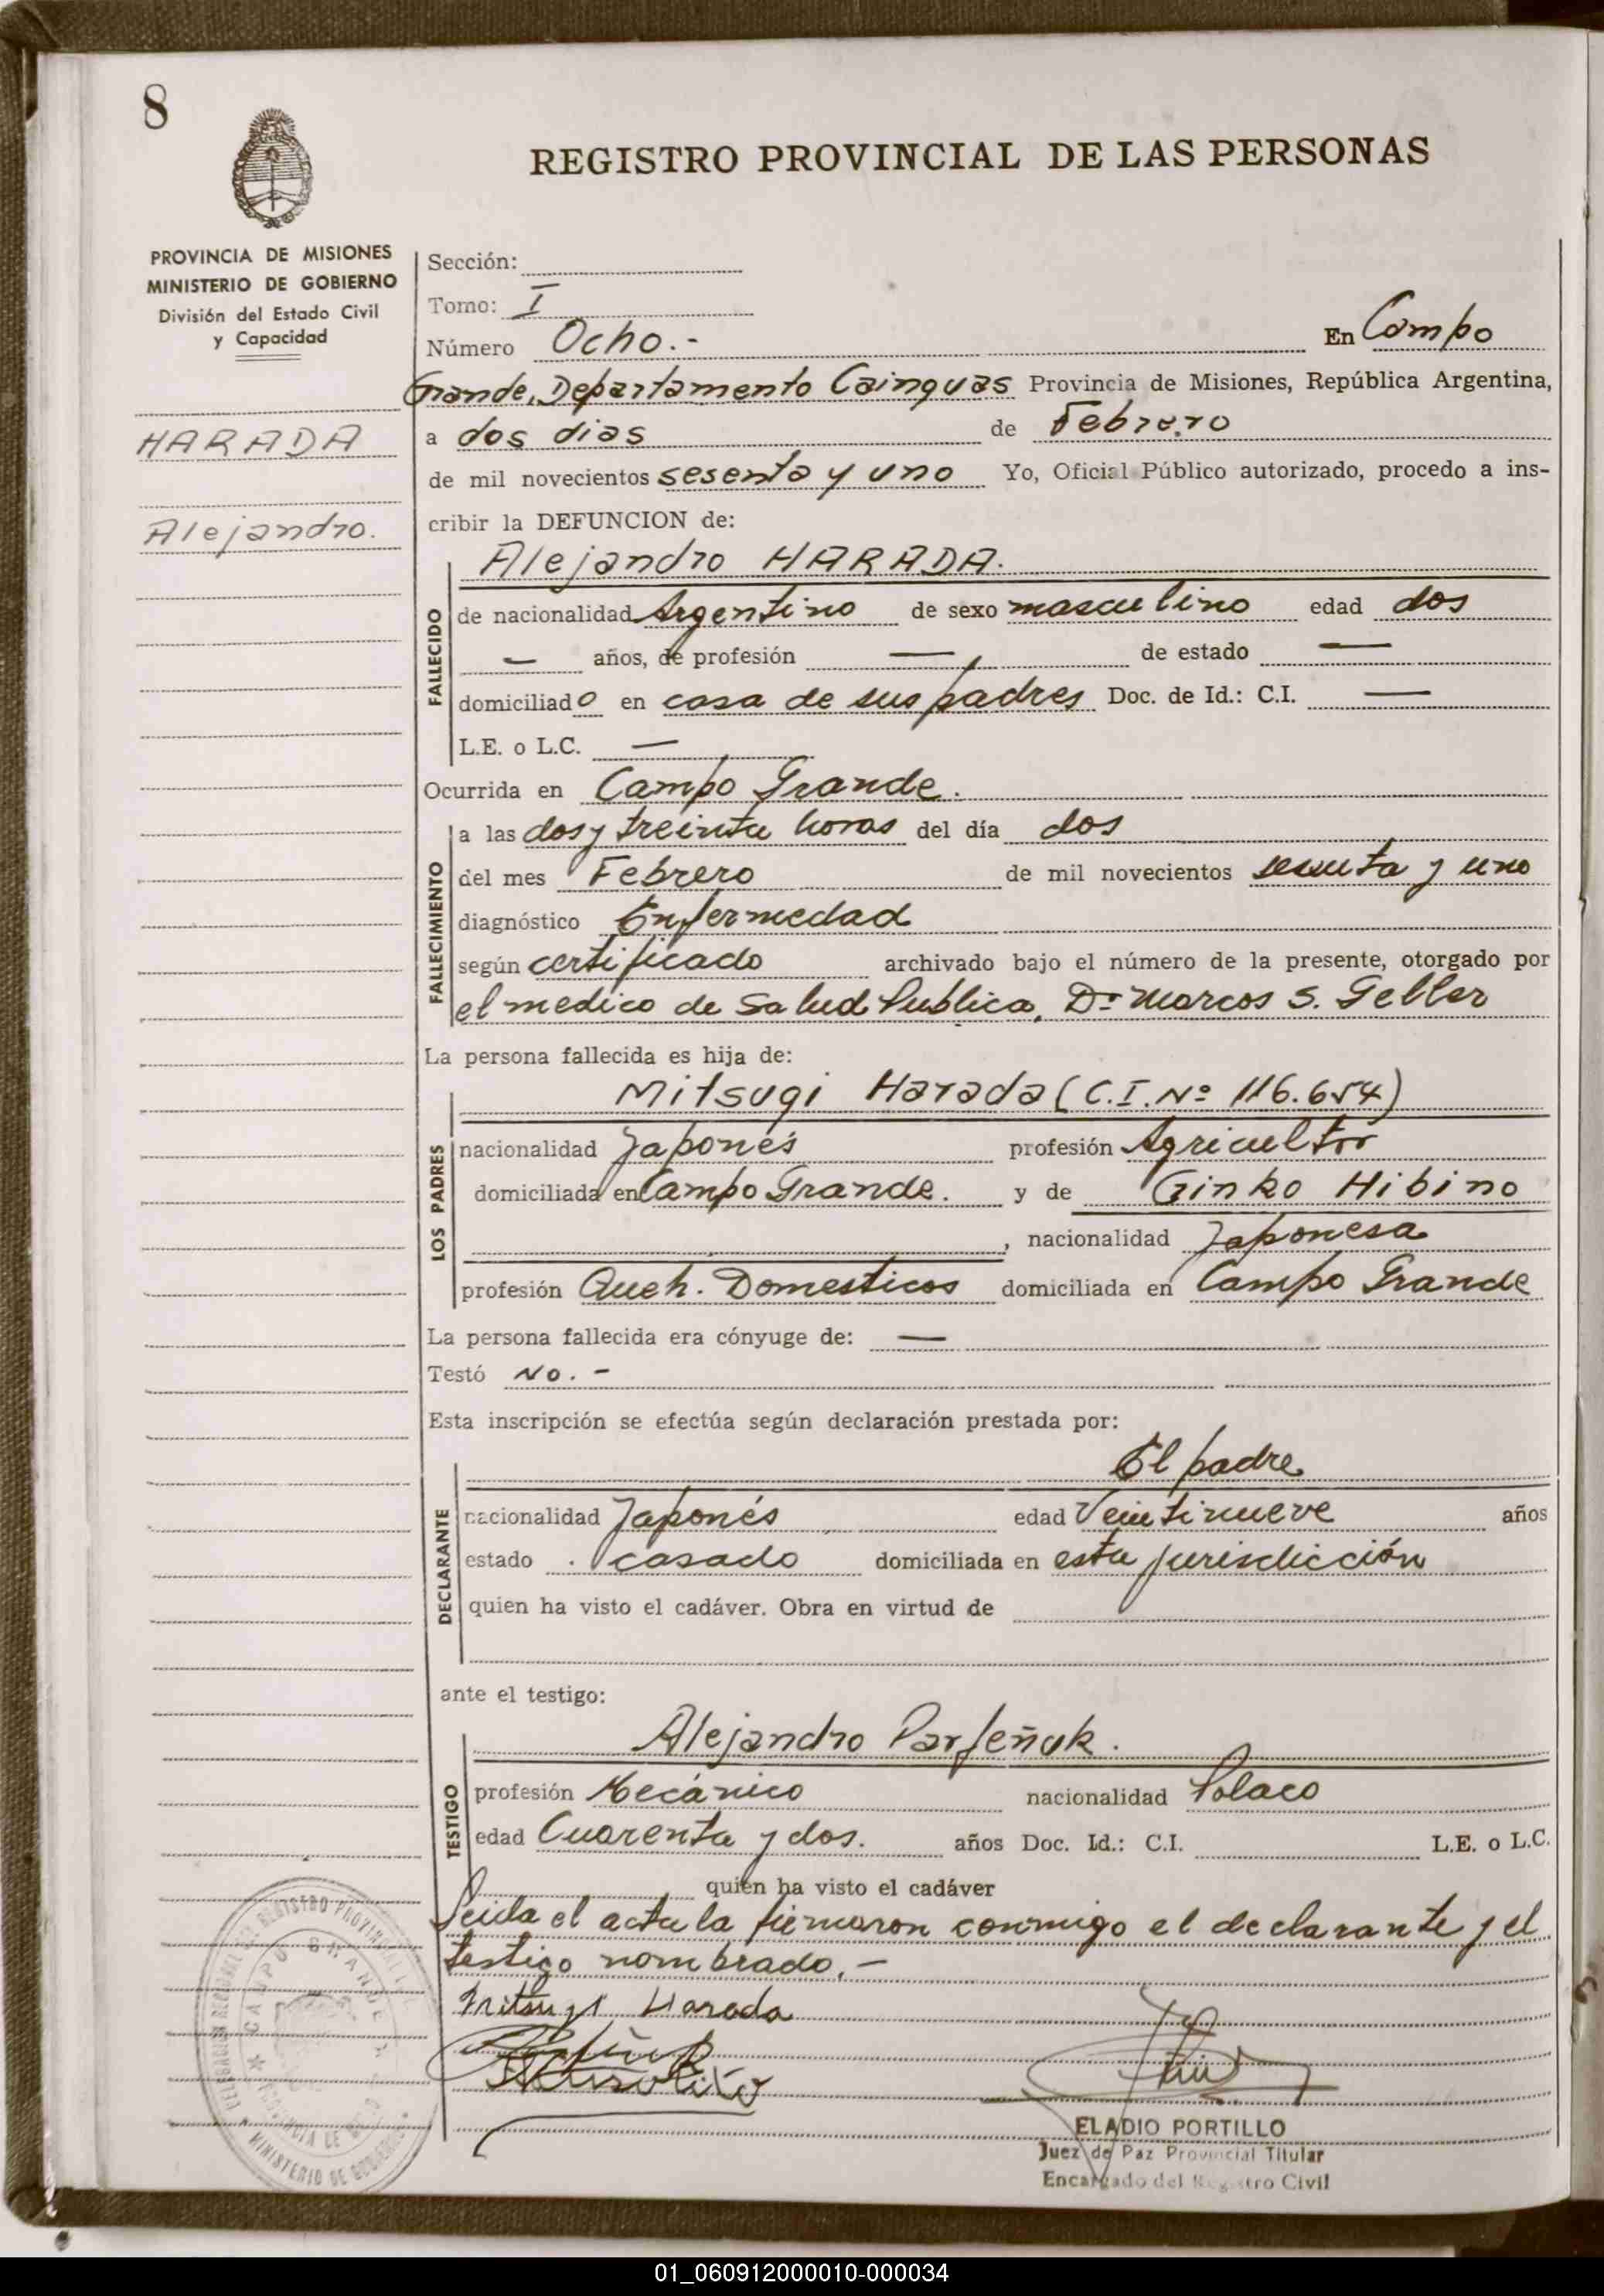 8
REGISTRO PROVINCIAL DE LAS PERSONAS
PROVINCIA DE MISIONES
MINISTERIO DE GOBIERNO
División del Estado Civil
y Capacidad
HARADA
Alejandro.
Sección:
Tomo: I
Número Ocho.- En Campo
Grande, Departamento Cainguas Provincia de Misiones, República Argentina,
a dos dias de Febrero
de mil novecientos sesenta y uno Yo, Oficial Público autorizado, procedo a ins-
cribir la DEFUNCION de:
Alejandro HARADA.
FALLECIDO
de nacionalidad Argentino de sexo masculino edad dos
— años, de profesión — de estado —
domiciliado en casa de sus padres Doc. de Id.: C.I. —
L.E. o L.C. —
Ocurrida en Campo Grande.
FALLECIMIENTO
a las dos y treinta horas del día dos
del mes Febrero de mil novecientos sesenta y uno
diagnóstico Enfermedad
según certificado archivado bajo el número de la presente, otorgado por
el medico de Salud Publica, Dr Marcos S. Geller
La persona fallecida es hija de:
Mitsugi Harada (C.I. Nº 116.654)
LOS PADRES
nacionalidad Japonés profesión Agricultor
domiciliada en Campo Grande. y de Ginko Hibino
, nacionalidad Japonesa
profesión Queh. Domesticos domiciliada en Campo Grande
La persona fallecida era cónyuge de: —
Testó No.-
Esta inscripción se efectúa según declaración prestada por:
El padre
DECLARANTE
nacionalidad Japonés edad Veintinueve años
estado casado domiciliada en esta jurisdicción
quien ha visto el cadáver. Obra en virtud de
ante el testigo:
Alejandro Parfeñuk.
TESTIGO
profesión Mecánico nacionalidad Polaco
edad Cuarenta y dos. años Doc. Id.: C.I. L.E. o L.C.
quien ha visto el cadáver
Leida el acta la firmaron conmigo el declarante y el
testigo nombrado.-
Mitsugi Harada
ELADIO PORTILLO
Juez de Paz Provincial Titular
Encargado del Registro Civil
CAMPO GRANDE
MINISTERIO DE GOBIERNO
01_060912000010-000034